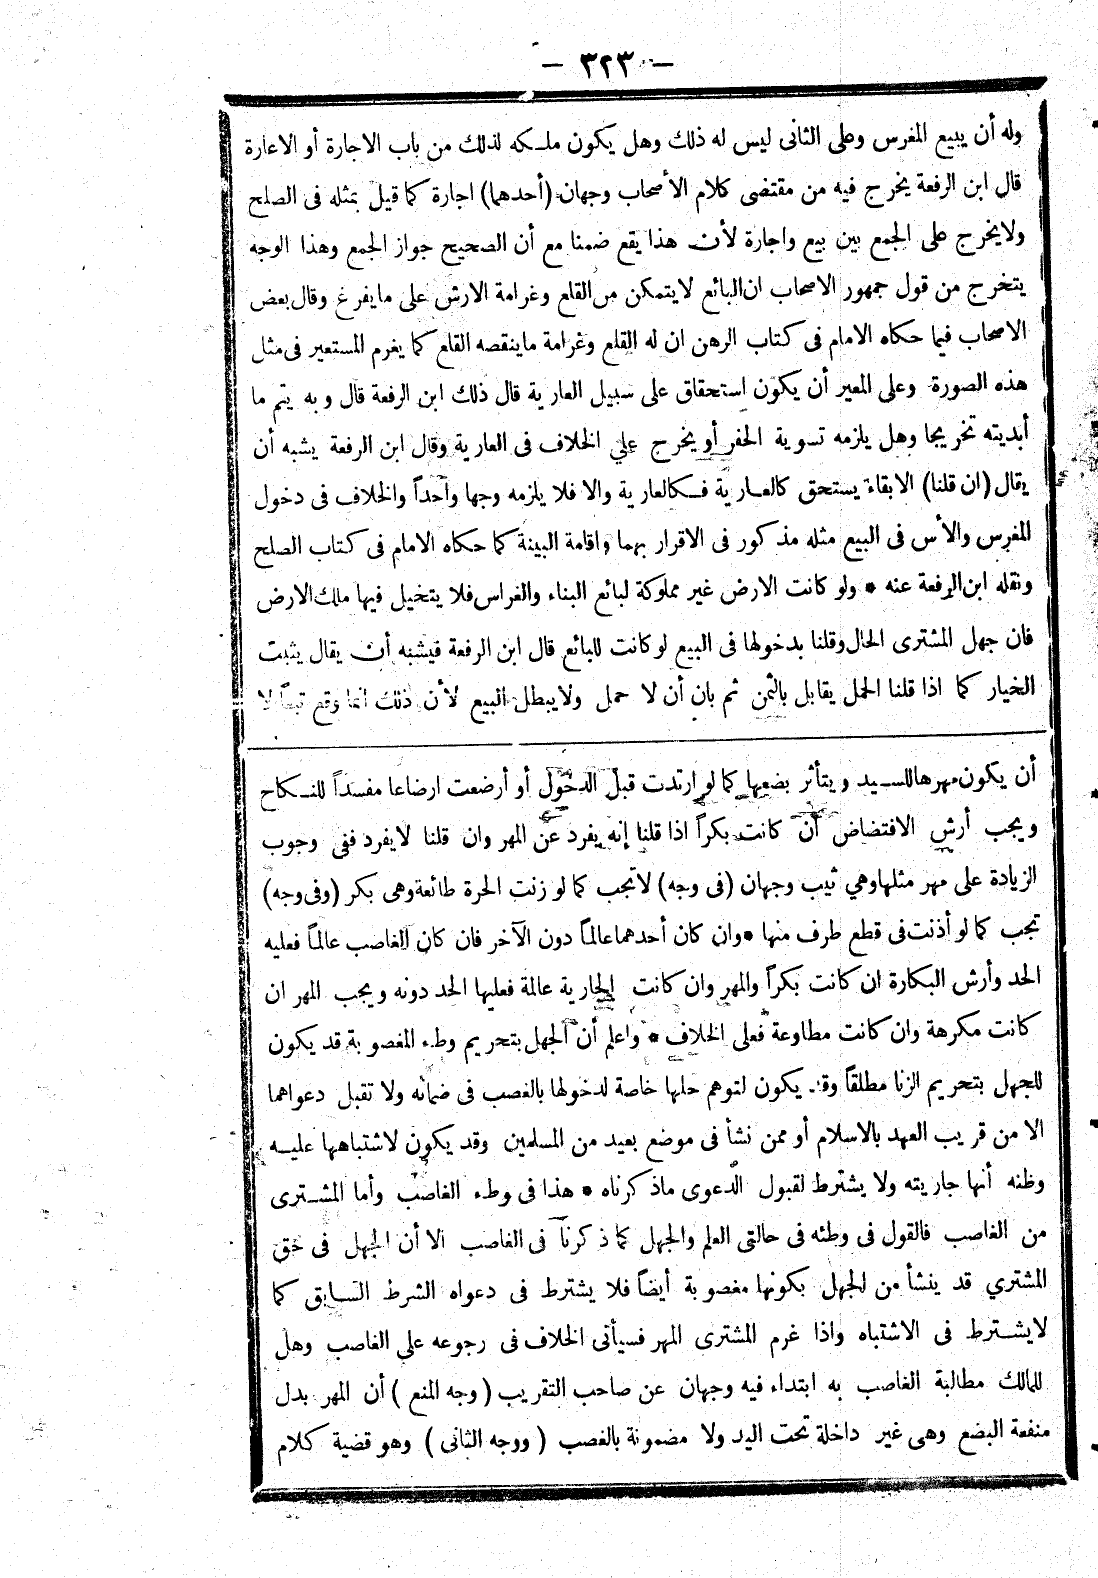 — ٣٢٣ —
وله أن يبيع المغرس وعلى الثانى ليس له ذلك وهل يكون ملـكه لذلك من باب الاجارة أو الاعارة
قال ابن الرفعة يخرج فيه من مقتضى كلام الأصحاب وجهان (أحدهما) اجارة كما قيل بمثله فى الصلح
ولايخرج على الجمع بين بيع واجارة لأن هذا يقع ضمنا مع أن الصحيح جواز الجمع وهذا الوجه
يتخرج من قول جمهور الاصحاب ان البائع لايتمكن من القلع وغرامة الارش على مايفرغ وقال بعض
الاصحاب فيما حكاه الامام فى كتاب الرهن ان له القلع وغرامة ماينقصه القلع كما يغرم المستعير فى مثل
هذه الصورة وعلى المعير أن يكون استحقاق على سبيل العارية قال ذلك ابن الرفعة قال وبه يتم ما
أبديته تخريجا وهل يلزمه تسوية الحفر أو يخرج علي الخلاف فى العارية وقال ابن الرفعة يشبه أن
يقال (ان قلنا) الابقاء يستحق كالعـارية فـكالعارية والا فلا يلزمه وجها وأحداً والخلاف فى دخول
المغرس والأس فى البيع مثله مذكور فى الاقرار بهما واقامة البينة كما حكاه الامام فى كتاب الصلح
ونقله ابن الرفعة عنه * ولو كانت الارض غير مملوكة لبائع البناء والغراس فلا يتخيل فيها ملك الارض
فان جهل المشترى الحال وقلنا بدخولها فى البيع لو كانت للبائع قال ابن الرفعة فيشبه أن يقال يثبت
الخيار كما اذا قلنا الحمل يقابل بالثمن ثم بان أن لا حمل ولايبطل البيع لأن ذلك انما وقع تبعاً لا
أن يكون مهرها للسـيد ويتأثر بضعها كما لو ارتدت قبل الدخول أو أرضعت ارضاعا مفسداً للنـكاح
ويجب أرش الافتضاض أن كانت بكراً اذا قلنا إنه يفرد عن المهر وان قلنا لايفرد ففى وجوب
الزيادة على مهر مثلها وهي ثيب وجهان (فى وجه) لا تجب كما لو زنت الحرة طائعة وهى بكر (وفى وجه)
تجب كما لو أذنت فى قطع طرف منها * وان كان أحدهما عالماً دون الآخر فان كان الغاصب عالماً فعليه
الحد وأرش البكارة ان كانت بكراً والمهر وان كانت الجارية عالمة فعليها الحد دونه ويجب المهر ان
كانت مكرهة وان كانت مطاوعة فعلى الخلاف * واعلم أن الجهل بتحريم وطء المغصوبة قد يكون
للجهل بتحريم الزنا مطلقاً وقد يكون لتوهم حلها خاصة لدخولها بالغصب فى ضمانه ولا تقبل دعواهما
الا من قريب العهد بالاسلام أو ممن نشأ فى موضع بعيد من المسلمين وقد يكون لاشتباهها عليـه
وظنه أنها جاريته ولا يشترط لقبول الدعوى ماذكرناه * هذا فى وطء الغاصب وأما المشـترى
من الغاصب فالقول فى وطئه فى حالتى العلم والجهل كما ذكرنا فى الغاصب الا أن الجهل فى حق
المشتري قد ينشأ من الجهل بكونها مغصوبة أيضاً فلا يشترط فى دعواه الشرط السـابق كما
لايشـترط فى الاشتباه واذا غرم المشترى المهر فسيأتى الخلاف فى رجوعه علي الغاصب وهل
للمالك مطالبة الغاصب به ابتداء فيه وجهان عن صاحب التقريب (وجه المنع) أن المهر بدل
منفعة البضع وهى غير داخلة تحت اليد ولا مضمونة بالغصب (ووجه الثانى) وهو قضية كلام